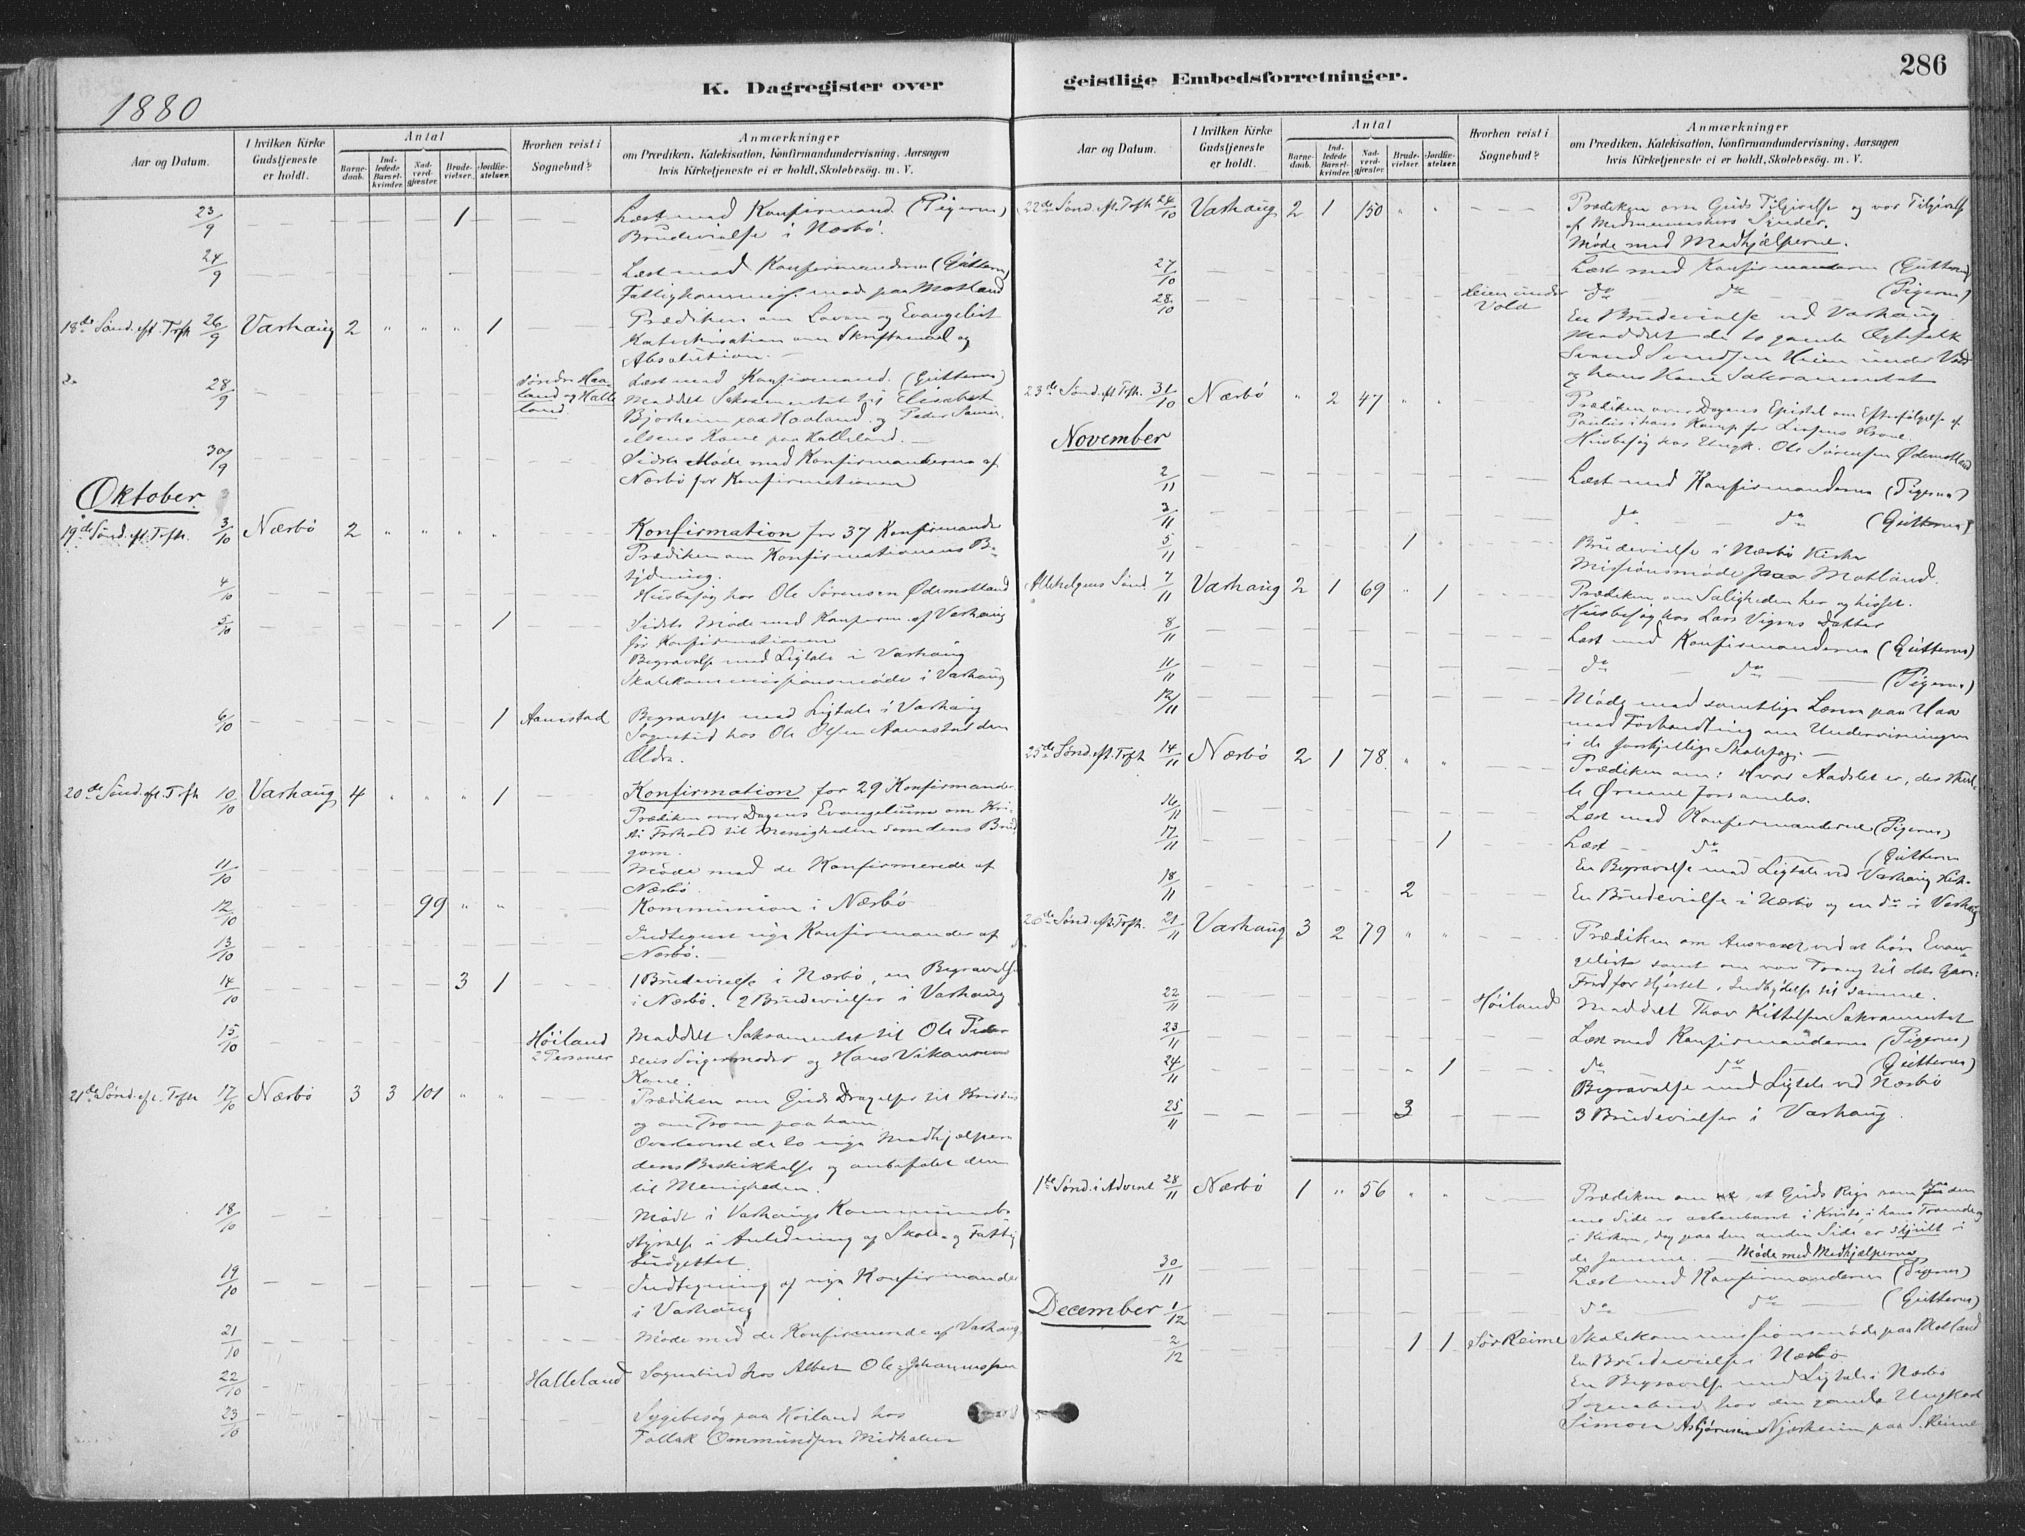 K. Dagregister over
1880
Aar og Datum.
I hvilken Kirke Gudstjeneste er holdt.
Antal
Barnedaab.
Indledede Barselkvinder.
Nadverdgjæster.
Brudevielser.
Jordfæstelser.
Hvorhen reist i Sognebud?
Anmærkninger
om Prædiken, Katekisation, Konfirmandundervisning, Aarsagen
hvis Kirketjeneste ei er holdt, Skolebesøg, m. V.
23/9 1 Læst med Konfirmand. (Pigerne)
Brudevielse i Nærbø.
24/9 Læst med Konfirmanderne (Gutterne)
paa Motland
18de Sønd. eft. Trft. 26/9 Varhaug 2 " " " 1 Prædiken om Loven og Evangeliet
Katechisation om Skriftemaal og
Absolution.
28/9 Søndre Haaland og Halleland Læst med Konfirmand. (Gutterne)
Meddelt Sakramentet til Elisabet
Bjorheim paa Haaland og Peder
Kone paa Halleland.
30/9 Sidste Møde med Konfirmanderne af
Nærbø før Konfirmationen
Oktober.
19de Sønd. eft. Trft. 3/10 Nærbø 2 " " " " Konfirmation for 37 Konfirmander
Prædiken om Konfirmationens Betydning.
4/10 Husbesøg hos Ole Sørensen Ødemotland
5/10 1 Sidste Møde med Konfirm. af Varhaug
før Konfirmationen
Begravelse med Ligtale i Varhaug
Skolekommissionsmøde i Varhaug
6/10 1 Aanestad Begravelse med Ligtale i Varhaug
Sognebud hos Ole Olsen Aanestad den
Ældre.
20de Sønd. eft. Trft. 10/10 Varhaug 4 " " " 1 Konfirmation for 29 Konfirmander
Prædiken over Dagens Evangelium om Kristi Forhold til Menigheden som dens Brudgom.
11/10 Møde med de Konfirmerede af
Nærbø.
12/10 99 " " Kommunion i Nærbø
13/10 Indtegnet nye Konfirmander af
Nærbø.
14/10 3 1 1 Brudevielse i Nærbø, en Begravelse
i Nærbø. 2 Brudevielser i Varhaug
15/10 Høiland 2 Personer Meddelt Sakramentet til Ole Pedersens Svigermoder og Hans
Kone.
21de Sønd. eft. Trft. 17/10 Nærbø 3 3 101 " " Prædiken om Guds Dragelse til Kristus
og om Troen paa ham.
de to nye Medhjælpere
deres Beskikkelse og anbefalet dem
til Menigheden.
18/10 Mødt i Varhaugs Kommunebestyrelse i Anledning af Skole- og Fattigbudgettet.
19/10 Indtegning af nye Konfirmander
i Varhaug
21/10 Møde med de Konfirmerede af Varhaug
22/10 Halleland Sognebud hos Albert Ole Johannessen
23/10 Sygebesøg paa Høiland hos
Tollak Ommundsen
geistlige Embedsforretninger.
286
Aar og Datum.
I hvilken Kirke Gudstjeneste er holdt.
Antal
Barnedaab.
Indledede Barselkvinder.
Nadverdgjæster.
Brudevielser.
Jordfæstelser.
Hvorhen reist i Sognebud?
Anmærkninger
om Prædiken, Katekisation, Konfirmandundervisning, Aarsagen
hvis Kirketjeneste ei er holdt, Skolebesøg, m. V.
22de Sønd. eft. Trft. 24/10 Varhaug 2 1 150 " " Prædiken om Guds Tilgivelse og vor Tilgivelse
af Medmenneskers Synder.
Møde med Medhjælperne.
27/10 Læst med Konfirmanderne (Gutterne)
28/10 Heien under Vold do do (Pigerne)
En Brudevielse ved Varhaug.
Meddelt de to gamle Ægtefolk
Svend Svendsen Heien under Vold
og hans Kone Sakramentet
23de Sønd. eft. Trft. 31/10 Nærbø " 2 47 " " Prædiken over Dagens Epistel om Efterfølgelse af
Paulus i hans Kamp for Livsens Krone.
Husbesøg hos Ungk. Ole Sørensen Ødemotland
November
2/11 Læst med Konfirmanderne (Pigerne)
3/11 do do (Gutterne)
5/11 1 Brudevielse i Nærbø Kirke
Missionsmøde paa Motland.
Allehelgens Sønd. 7/11 Varhaug 2 1 69 " 1 Prædiken om Saligheden her og hisset.
Husbesøg hos Lars Vigres Datter
8/11 Læst med Konfirmanderne (Gutterne)
11/11 do do (Pigerne)
12/11 Møde med samtlige Lærere paa Haa
med Forhandling om Undervisningen
i de forskjellige Skolefag.
25de Sønd. eft. Trft. 14/11 Nærbø 2 1 78 " " Prædiken om: Hvor Aadslet er, der skulle Ørnene forsamles.
16/11 Læst med Konfirmanderne (Pigerne)
17/11 1 Læst do (Gutterne
En Begravelse med Ligtale ved Varhaug Kirke
18/11 2 En Brudevielse i Nærbø og en do i Varhaug
26de Sønd. eft. Trft. 21/11 Varhaug 3 2 79 " " Prædiken om Ansvaret ved at høre Evangeliet samt om vor Trang til dets
Fred for Hjertet, Indbydelse til samme.
22/11 Høiland Meddelt Thor Kittelsen Sakramentet
23/11 Læst med Konfirmanderne (Pigerne)
24/11 " 1 do do (Gutterne)
Begravelse med Ligtale ved Nærbø
25/11 3 3 Brudevielser i Varhaug.
1ste Sønd. i Advent 28/11 Nærbø 1 " 56 " " Prædiken om, at Guds Rige som paa den
ene Side er aabenbaret i Kristo, i hans
i Kirken, dog paa den anden Side er skjult i
de Møde med Medhjælperne
30/11 Læst med Konfirmanderne (Pigerne)
December 1/12 do do (Gutterne)
2/12 1 1 Sør Reime Skolekommissionsmøde paa Motland
En Brudevielse i Nærbø
En Begravelse med Ligtale i Nærbø
Sognebud hos den gamle Ungkarl
Simon Asbjørnsen Njærheim paa S. Reime